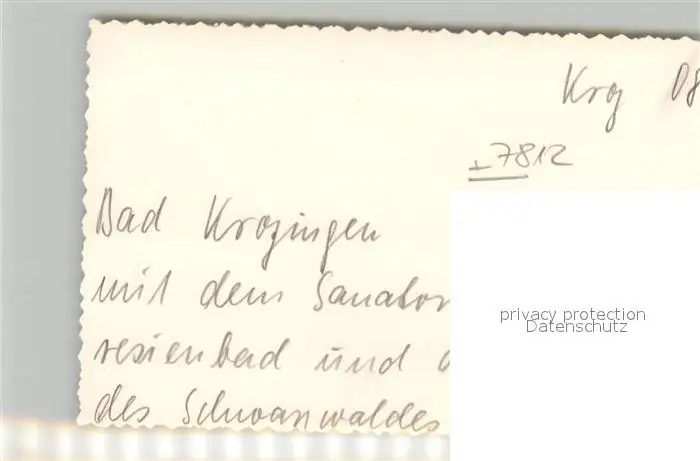 Krg 08
± 7812
Bad Krozingen
mit dem Sanator
resienbad und
des Schwarzwaldes
privacy protection
Datenschutz